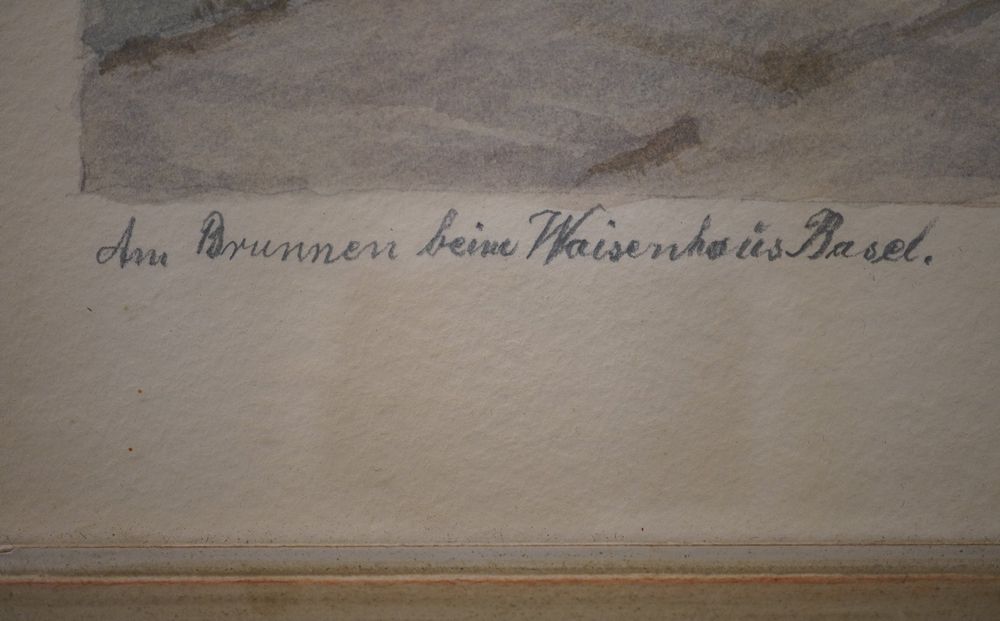 Am Brunnen beim Waisenhaus Basel.